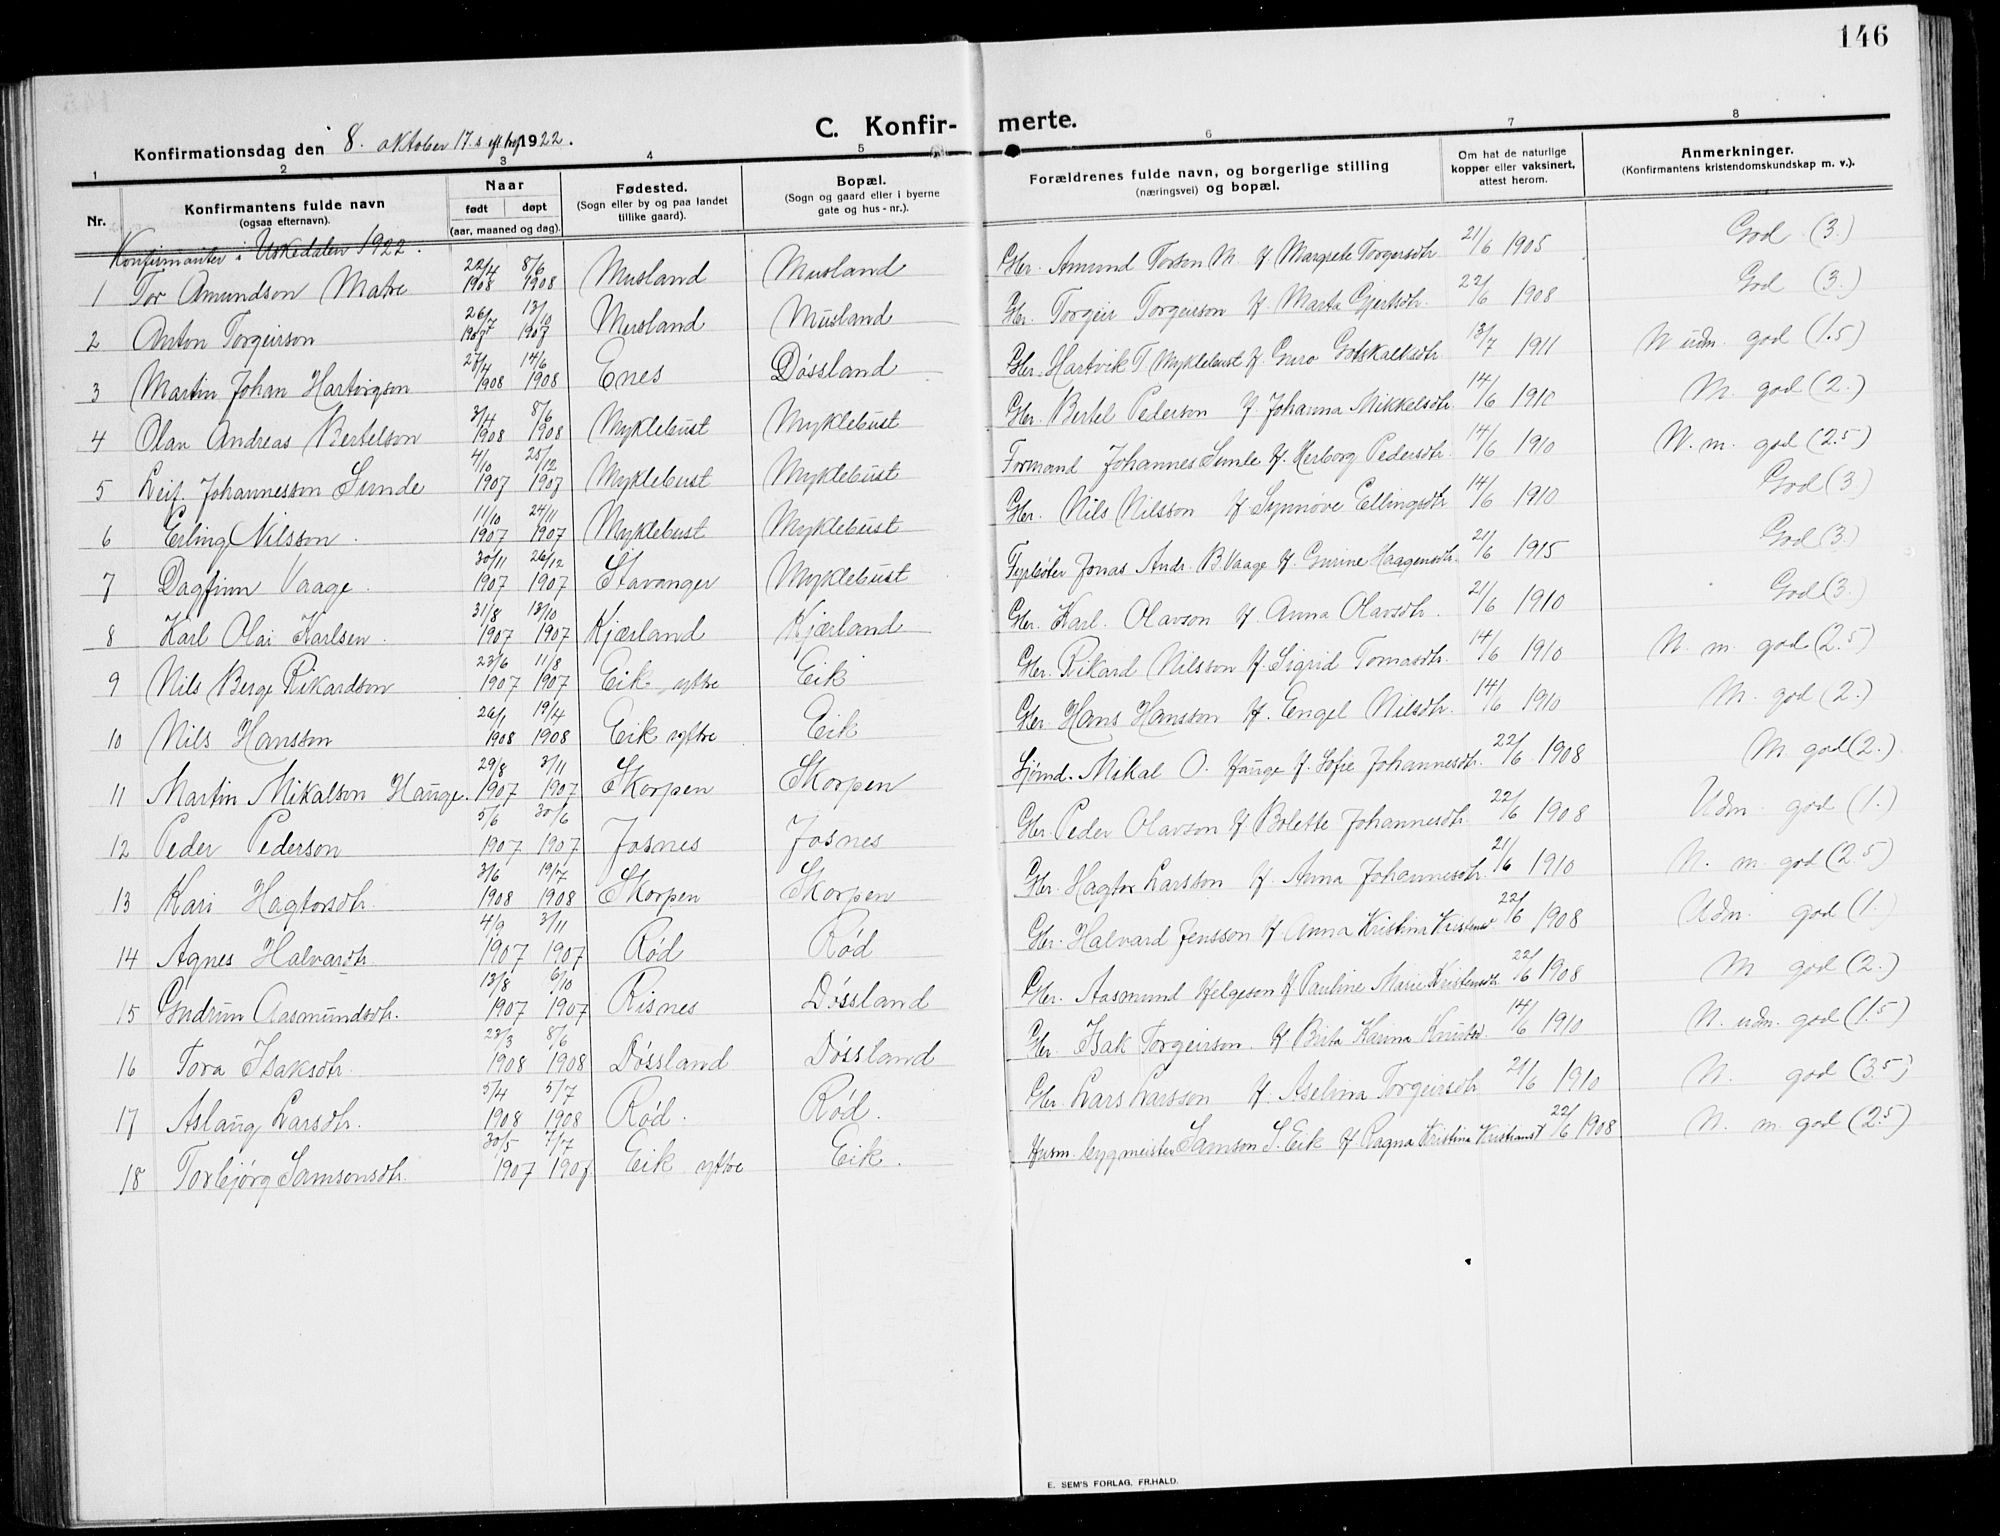 146
C. Konfirmerte.
Konfirmationsdag den 8. oktober 17. s. eft. tref. 1922.
1 2 3 4 5 6 7 8
Nr. | Konfirmantens fulde navn (ogsaa efternavn). | Naar født døpt (aar, maaned og dag). | Fødested. (Sogn eller by og paa landet tillike gaard). | Bopæl. (Sogn og gaard eller i byerne gate og hus-nr.). | Forældrenes fulde navn, og borgerlige stilling (næringsvei) og bopæl. | Om hat de naturlige kopper eller vaksinert, attest herom. | Anmerkninger. (Konfirmantens kristendomskundskap m. v.).
Konfirmanter i Uskedalen 1922.
1 Tor Amundson Matre 22/4 1908 8/6 1908 Musland Musland Gbr. Amund Torson M. & Margrete Torgersdtr 21/6 1905 God (3.)
2 Anton Torgeirson 26/7 1907 13/10 1907 Musland Musland Gbr. Torgeir Torgeirson & Marta Gjertsdtr. 22/6 1908 God (3.)
3 Martin Johan Hartvigson 27/4 1908 14/6 1908 Enes Døssland Gbr. Hartvik T. Myklebust & Guro Gotskalksdtr 13/7 1911 N udm. god (1.5)
4 Olav Andreas Bertelson 3/4 1908 8/6 1908 Myklebust Myklebust Gbr. Bertel Pederson & Johanna Mikkelsdtr. 14/6 1910 M. god (2.)
5 Leif Johannesson Sunde 4/10 1907 25/12 1907 Myklebust Myklebust Formand Johannes Sunde & Herborg Pedersdtr. 14/6 1910 N. m. god (2.5)
6 Erling Nilsson. 11/10 1907 24/11 1907 Myklebust Myklebust Gbr. Nils Nilsson & Synnøve Ellingsdtr 14/6 1910 God (3)
7 Dagfinn Vaage. 30/11 1907 26/12 1907 Stavanger Myklebust Jonas Andr. B. Vaage & Gurine Haagensdtr. 21/6 1915 God (3.)
8 Karl Olai Karlsen. 31/8 1907 13/10 1907 Kjærland Kjærland Gbr. Karl Olavson & Anna Olavsdtr. 21/6 1910 God (3.)
9 Nils Berge Rikardson 23/6 1907 11/8 1907 Eik ytre Eik Gbr. Rikard Nilsson & Sigrid Tomasdtr. 14/6 1910 N. m. god (2.5)
10 Nils Hansson 26/1 1908 19/4 1908 Eik ytre Eik Gbr. Hans Hansson & Engel Nilsdtr. 14/6 1910 M. god (2.)
11 Martin Mikalson Hauge. 29/8 1907 3/11 1907 Skorpen Skorpen Sjømd. Mikal O. Hauge & Sofie Johannesdtr. 22/6 1908 M. god (2.)
12 Peder Pederson 5/6 1907 30/6 1907 Josnes Josnes Gbr. Peder Olavson & Bolette Johannesdtr 22/6 1908 Udm. god (1.)
13 Kari Hagtorsdtr. 3/6 1908 19/7 1908 Skorpen Skorpen Gbr. Hagtor Larsson & Anna Johannesdtr. 21/6 1910 N. m. god (2.5)
14 Agnes Halvardtr. 4/9 1907 3/11 1907 Rød Rød Gbr. Halvard Jensson & Anna Kristina Kristensd 22/6 1908 Udm. god (1.)
15 Gudrun Aasmundsdtr. 13/8 1907 6/10 1907 Risnes Døssland Gbr. Aasmund Helgeson & Pauline Marie Kristensdtr 22/6 1908 M god (2.)
16 Tora Isaksdtr. 23/3 1908 8/6 1908 Døssland Døssland Gbr. Isak Torgeirson & Birta Karina Knutsd. 14/6 1910 N. udm. god (1.5)
17 Aslaug Larsdtr. 5/4 1908 5/7 1908 Rød. Rød. Gbr. Lars Larsson & Aselina Torgeirsdtr 21/6 1910 N. god (3.5)
18 Torbjørg Samsonsdtr. 30/5 1907 7/7 1907. Eik ytre Eik. Husm. bygmeister Samson S. Eik & Ragna Kristina Kristiansd 22/6 1908 N. m. god (2.5)
E. SEM'S FORLAG, FR.HALD.